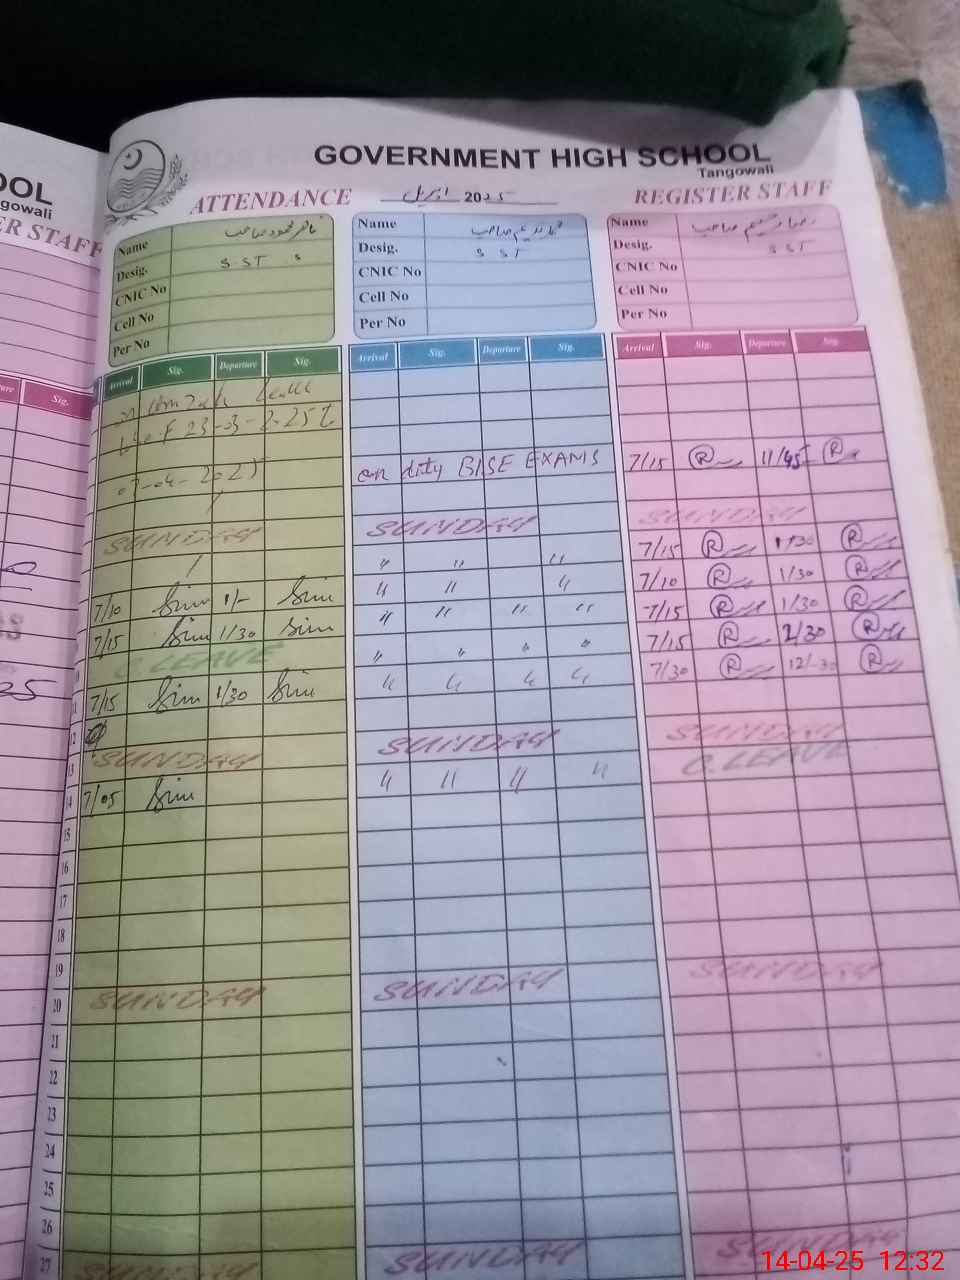 OOL
GOVERNMENT HIGH SCHOOL
gowali
Tangowali
ER STAFF
ATTENDANCE اپریل 2025 REGISTER STAFF
Name
Desig. SST
CNIC No
Cell No
Per No
Name
Desig. SST
CNIC No
Cell No
Per No
Name
Desig. SST
CNIC No
Cell No
Per No
ure Sig.
Arrival Sig. Departure Sig. Arrival Sig. Departure Sig. Arrival Sig. Departure Sig.
Leave
w.e.f 23-03-2025 to
07-04-2025
on duty BISE EXAMS 7/15 R 11/45 R
SUNDAY SUNDAY SUNDAY
" " " 7/15 R 1/30 R
7/10 1/- " " " 7/10 R 1/30 R
7/15 1/30 " " " " 7/15 R 1/30 R
C. LEAVE " " " " 7/15 R 2/30 R
11 7/15 1/30 " " " " 7/30 R 12/30 R
12
13 SUNDAY SUNDAY SUNDAY
14 7/05 " " " " C. LEAVE
15
16
17
18
19
20 SUNDAY SUNDAY SUNDAY
21
22
23
24
25
26
27 SUNDAY SUNDAY SUNDAY
14-04-25 12:32